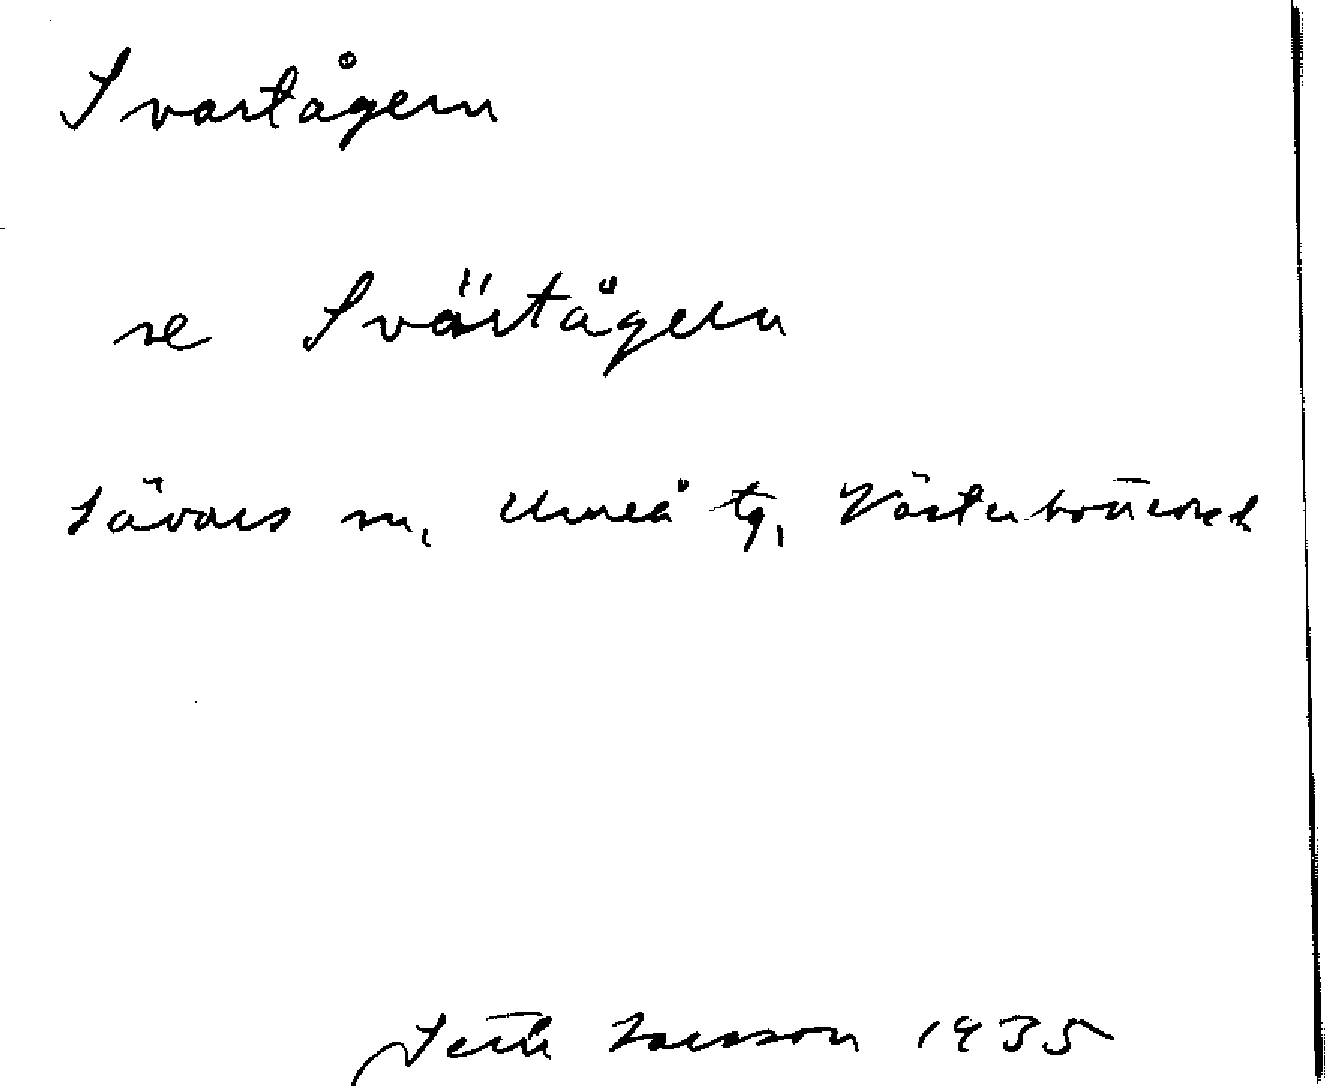 Svartågern
se Svärtågern
Sävars sn, Umeå tg, Västerbottens l.
Seth Larsson 1935